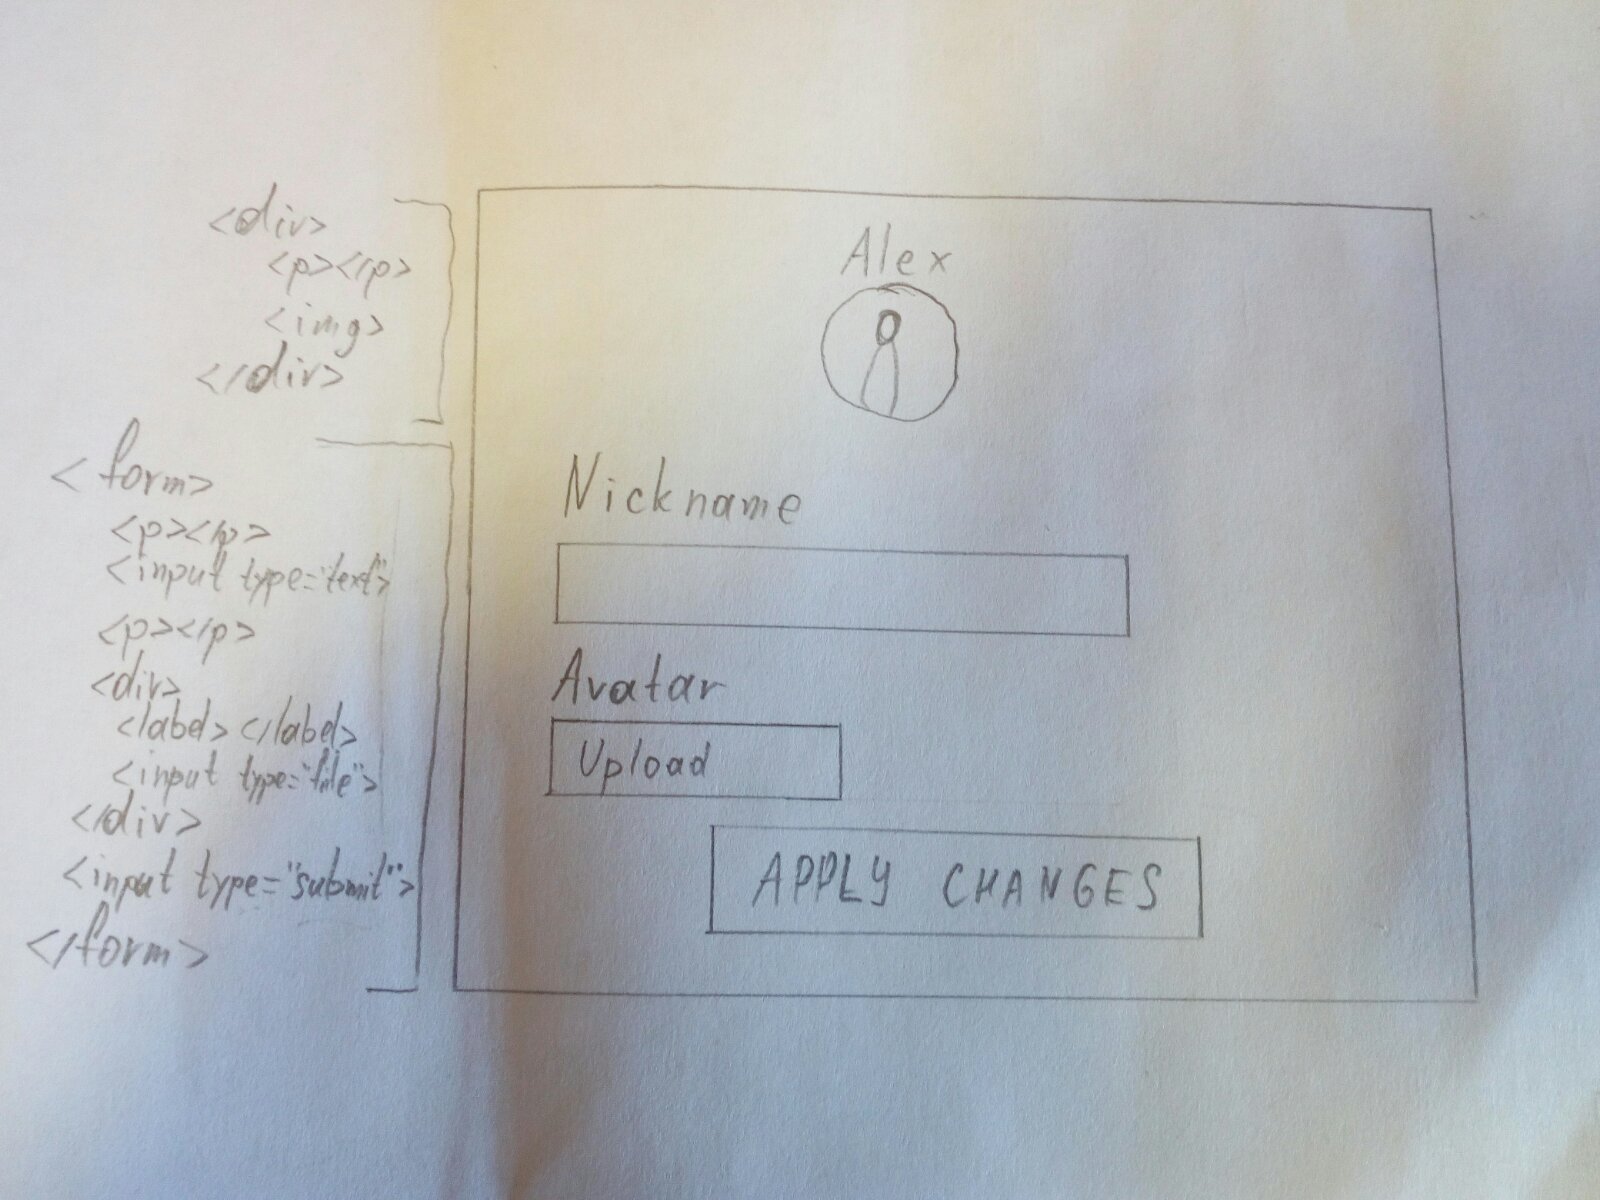 <div>
<p></p>
<img>
</div>
<form>
<p></p>
<input type="text">
<p></p>
<div>
<label></label>
<input type="file">
</div>
<input type="submit">
</form>
Alex
Nickname
Avatar
Upload
APPLY CHANGES